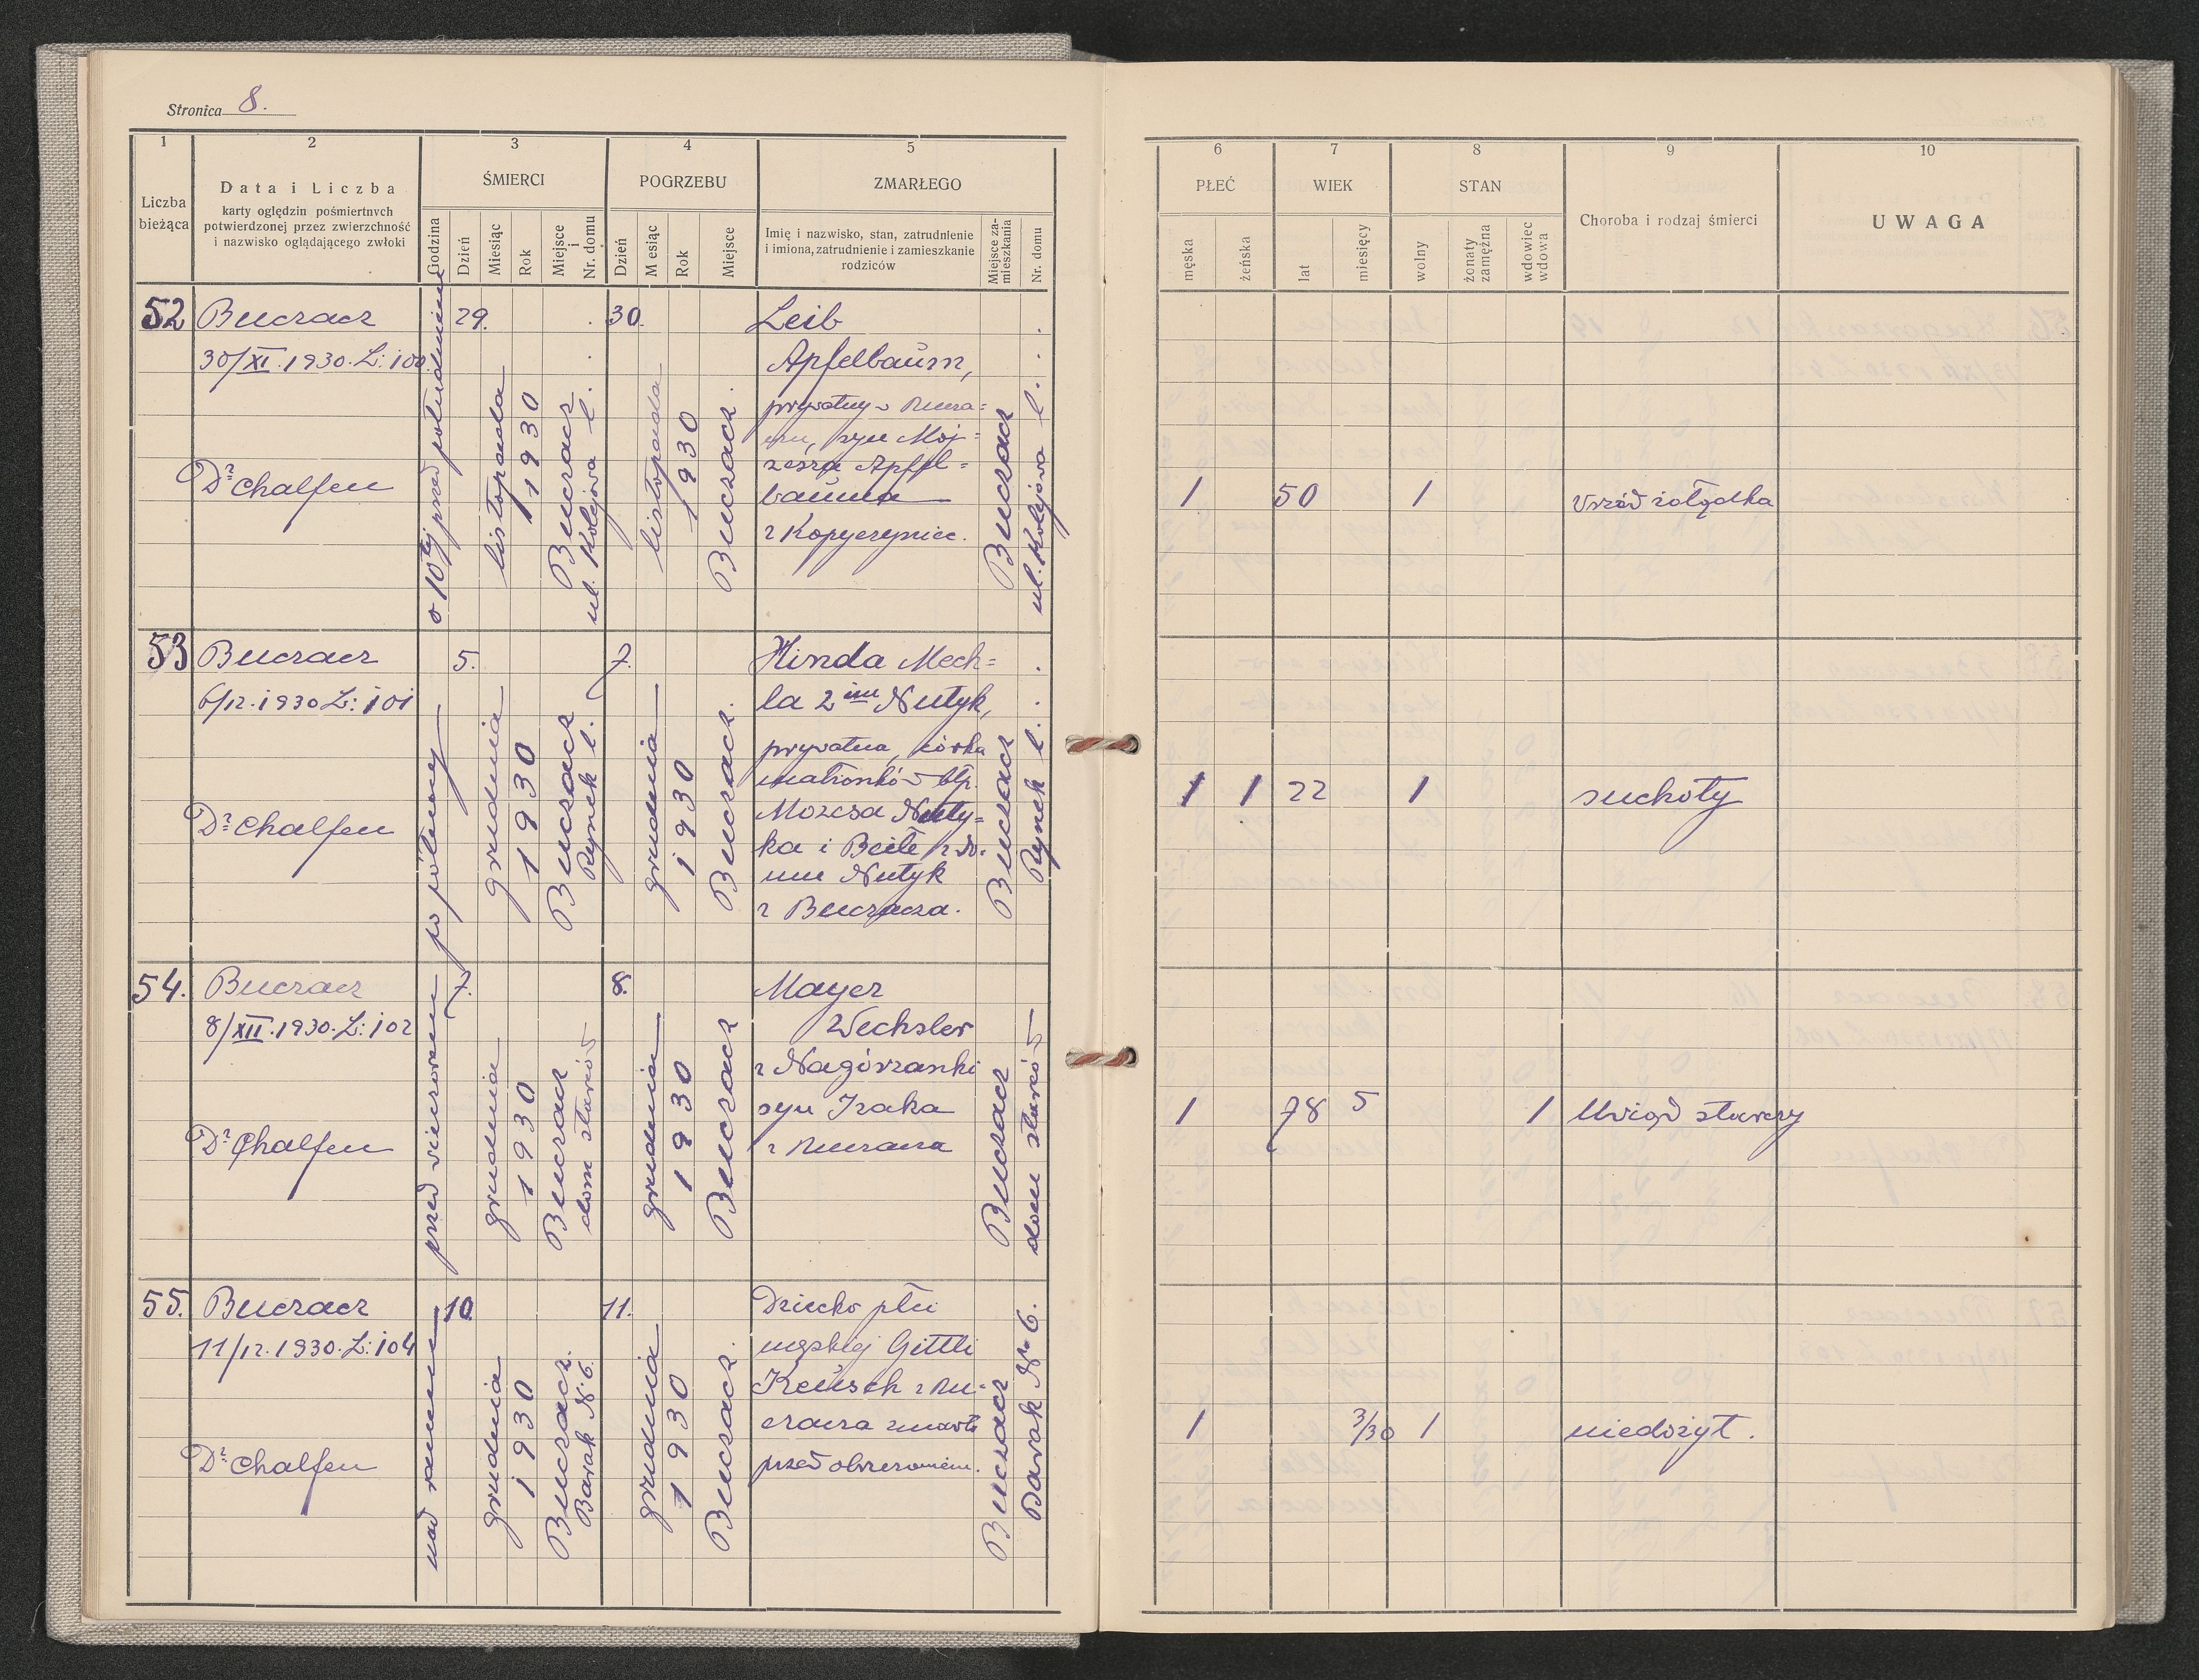 Stronica 8.
1 2 3 4 5
Liczba bieżąca
Data i Liczba
karty oględzin pośmiertnych
potwierdzonej przez zwierzchność
i nazwisko oglądającego zwłoki
ŚMIERCI
Godzina
Dzień
Miesiąc
Rok
Miejsce i Nr. domu
POGRZEBU
Dzień
Miesiąc
Rok
Miejsce
ZMARŁEGO
Imię i nazwisko, stan, zatrudnienie
i imiona, zatrudnienie i zamieszkanie
rodziców
Miejsce zamieszkania
Nr. domu
6 7 8 9 10
PŁEĆ
męska
żeńska
WIEK
lat
miesięcy
STAN
wolny
żonaty zamężna
wdowiec wdowa
Choroba i rodzaj śmierci
UWAGA
52
Buczacz
30/XI.1930.L:100
Dr Chalfen
o 10tej przed południem
29.
listopada
1930
Buczacz
ul. Kolejowa l.
30.
listopada
1930
Buczacz.
Leib
Apfelbaum,
prywatny w Bucza=
czu, syn Moj=
żesza Apfel=
bauma
z Kopyczyniec.
Buczacz
ul. Kolejowa l.
1
50
1
Wrzód żołądka
53
Buczacz
6/12.1930 L:101
Dr Chalfen
po północy
5.
grudnia
1930
Buczacz
Rynek l.
7.
grudnia
1930
Buczacz.
Hinda Mech=
la 2im Nutyk,
prywatna, córka
małżonków błp.
Mozesa Nuty=
ka i Beile z do.
mu Nutyk
z Buczacza.
Buczacz
Rynek l.
1
1
22
1
suchoty
54.
Buczacz
8/XII.1930.L:102
Dr Chalfen
przed wieczorem
7.
grudnia
1930
Buczacz
dom starców
8.
grudnia
1930
Buczacz
Mayer
Wechsler
z Nagórzanki
syn Izaka
z Buczacza
Buczacz
dom starców
1
78
5
1
Uwiąd starczy
55.
Buczacz
11/12.1930.L:104
Dr Chalfen
nad ranem
10.
grudnia
1930
Buczacz.
Barak N:6.
11.
grudnia
1930
Buczacz.
Dziecko płci
męskiej Gittli
Keusch z Bu=
czacza zmarłe
przed obrzezaniem.
Buczacz
Barak No 6.
1
3/30
1
niedożyt.